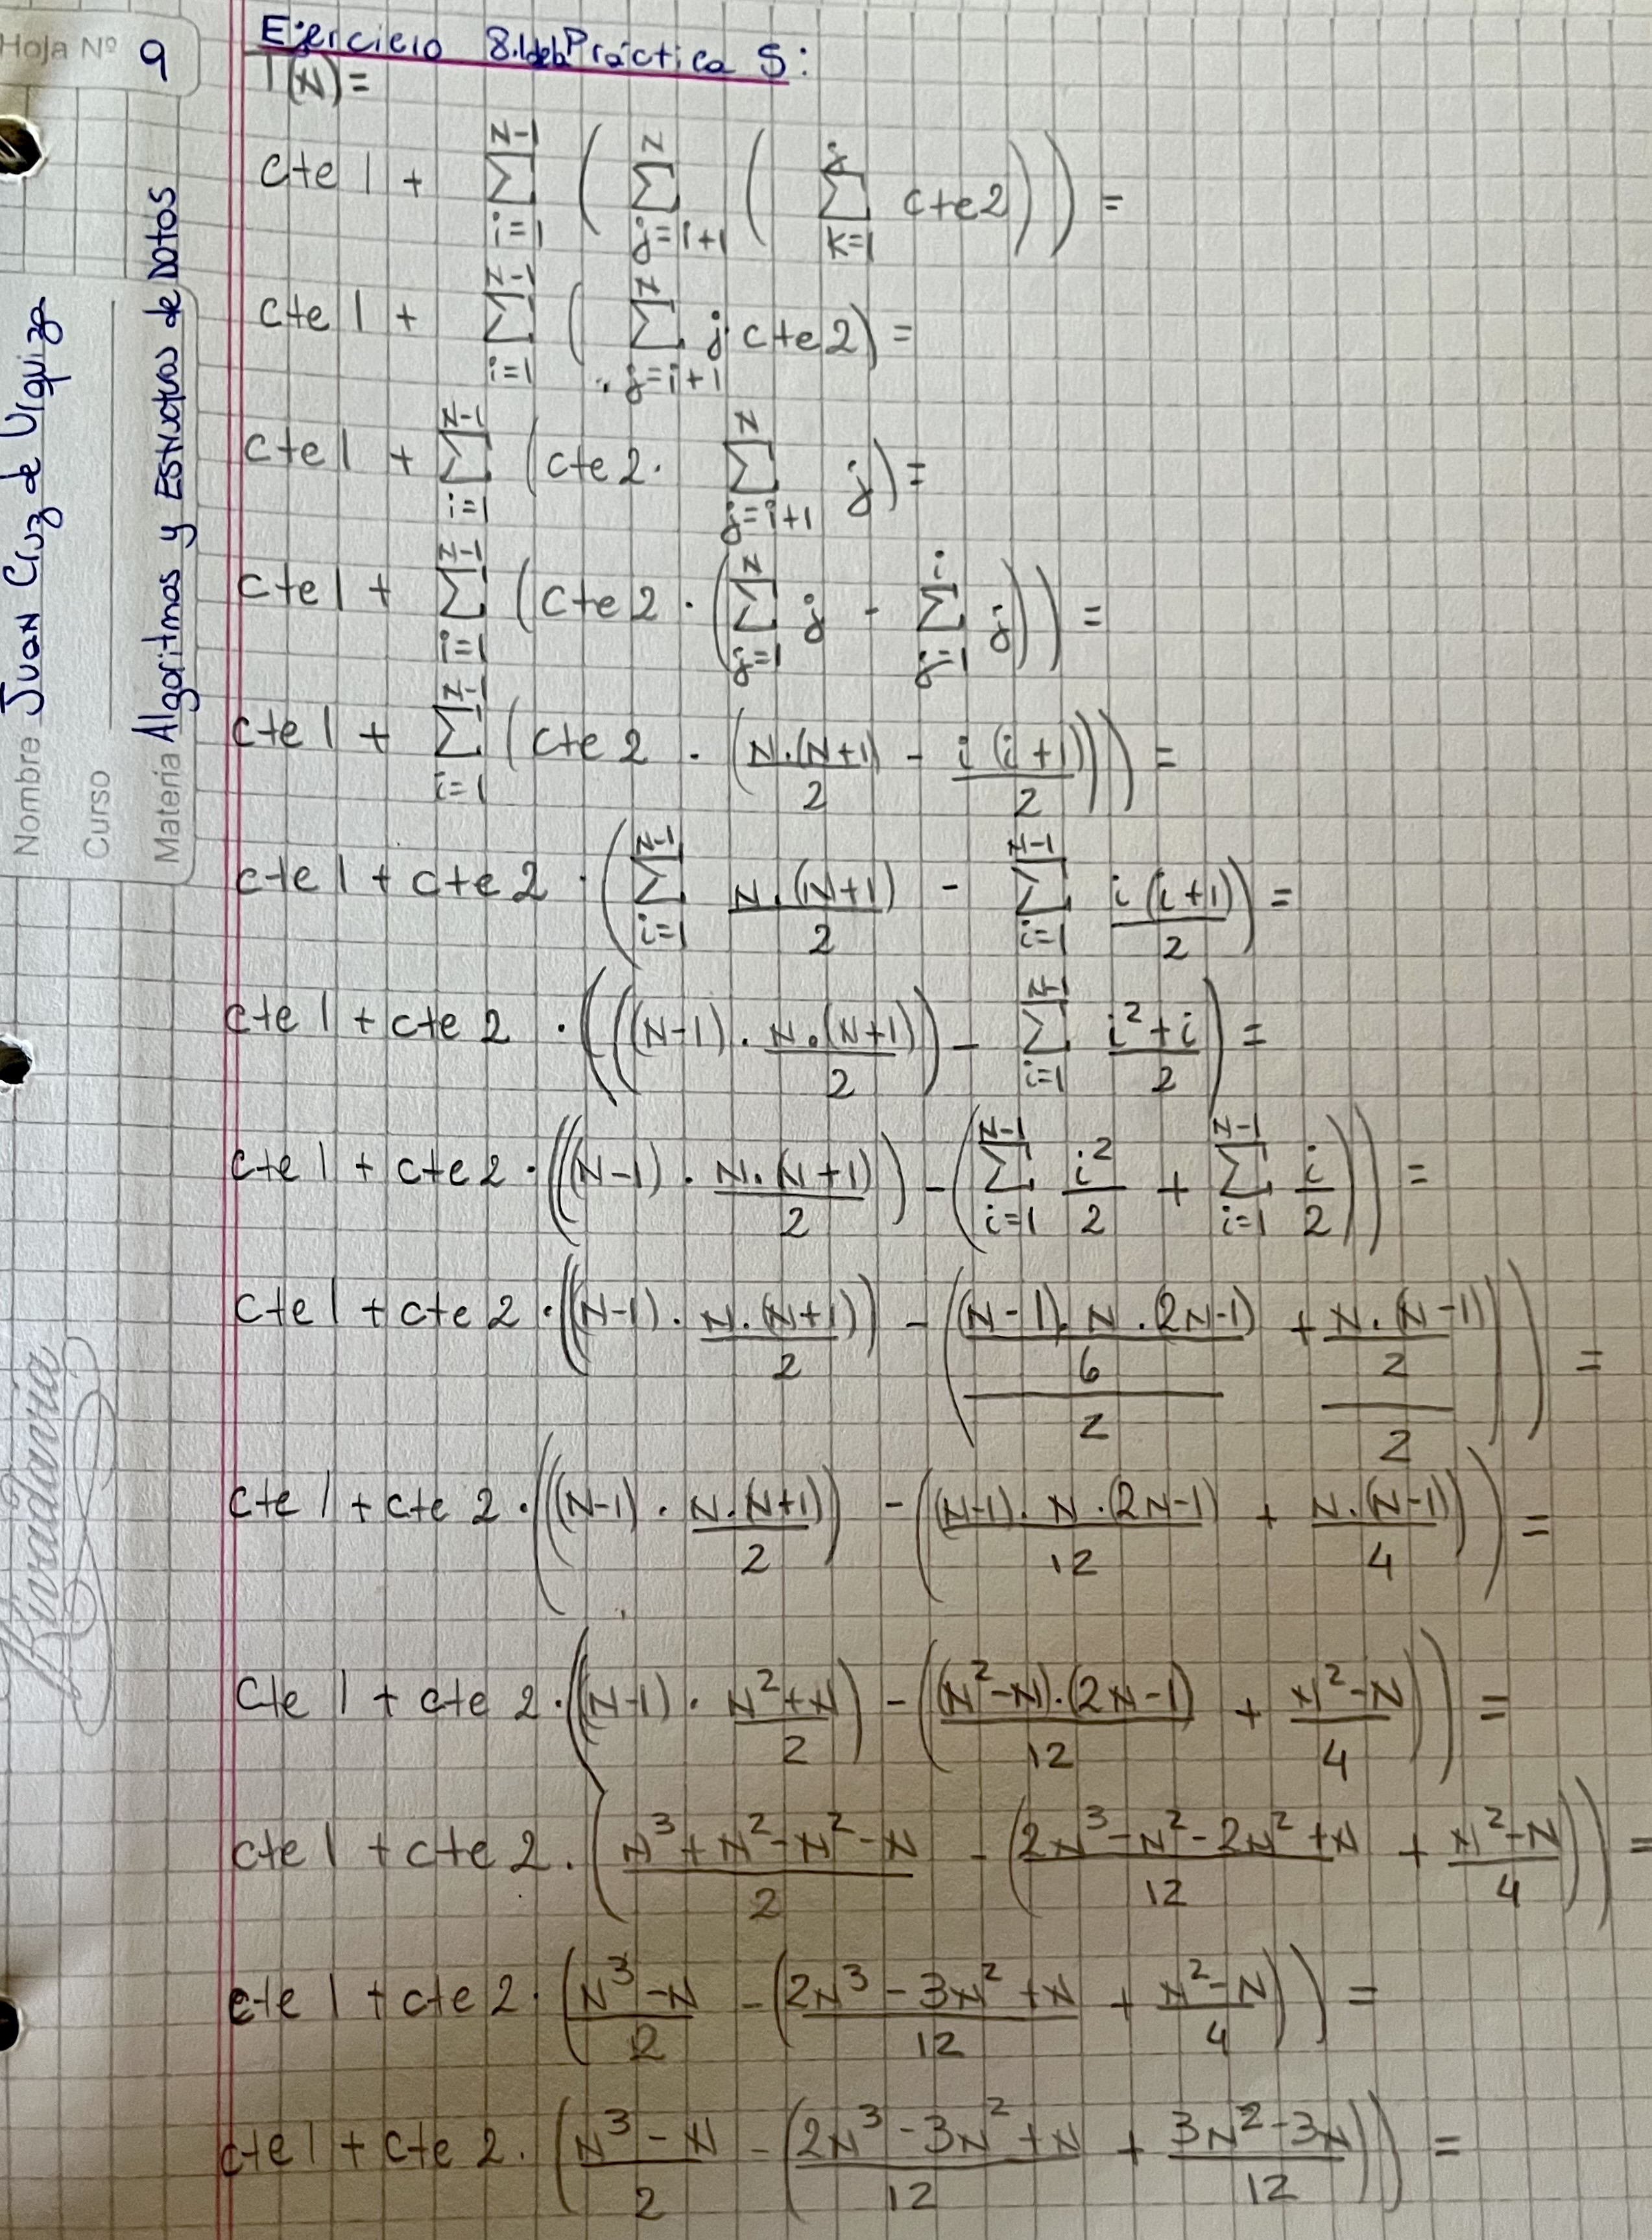 Hoja Nº 9
Nombre Juan Cruz de Urquiza
Curso
Materia Algoritmos y Estructuras de Datos
Rivadavia
Ejercicio 8.1 de la Práctica 5:
T(N) =
cte 1 + ∑_{i=1}^{N-1} ( ∑_{j=i+1}^{N} ( ∑_{k=1}^{j} cte2 ) ) =
cte 1 + ∑_{i=1}^{N-1} ( ∑_{j=i+1}^{N} j·cte2 ) =
cte 1 + ∑_{i=1}^{N-1} ( cte 2 · ∑_{j=i+1}^{N} j ) =
cte 1 + ∑_{i=1}^{N-1} ( cte 2 · ( ∑_{j=1}^{N} j - ∑_{j=1}^{i} j ) ) =
cte 1 + ∑_{i=1}^{N-1} ( cte 2 · ( N·(N+1)/2 - i(i+1)/2 ) ) =
cte 1 + cte 2 · ( ∑_{i=1}^{N-1} N·(N+1)/2 - ∑_{i=1}^{N-1} i(i+1)/2 ) =
cte 1 + cte 2 · ( ( (N-1) · N·(N+1)/2 ) - ∑_{i=1}^{N-1} (i²+i)/2 ) =
cte 1 + cte 2 · ( ( (N-1) · N·(N+1)/2 ) - ( ∑_{i=1}^{N-1} i²/2 + ∑_{i=1}^{N-1} i/2 ) ) =
cte 1 + cte 2 · ( ( (N-1) · N·(N+1)/2 ) - ( ((N-1)·N·2N-1)/6)/2 + (N·(N-1)/2)/2 ) ) =
cte 1 + cte 2 · ( ( (N-1) · N·(N+1)/2 ) - ( (N-1)·N·2N-1)/12 + N·(N-1)/4 ) ) =
cte 1 + cte 2 · ( ( (N-1) · (N²+N)/2 ) - ( (N²-N)·(2N-1)/12 + (N²-N)/4 ) ) =
cte 1 + cte 2 · ( (N³+N²-N²-N)/2 - ( (2N³-N²-2N²+N)/12 + (N²-N)/4 ) ) =
cte 1 + cte 2 · ( (N³-N)/2 - ( (2N³-3N²+N)/12 + (N²-N)/4 ) ) =
cte 1 + cte 2 · ( (N³-N)/2 - ( (2N³-3N²+N)/12 + (3N²-3N)/12 ) ) =